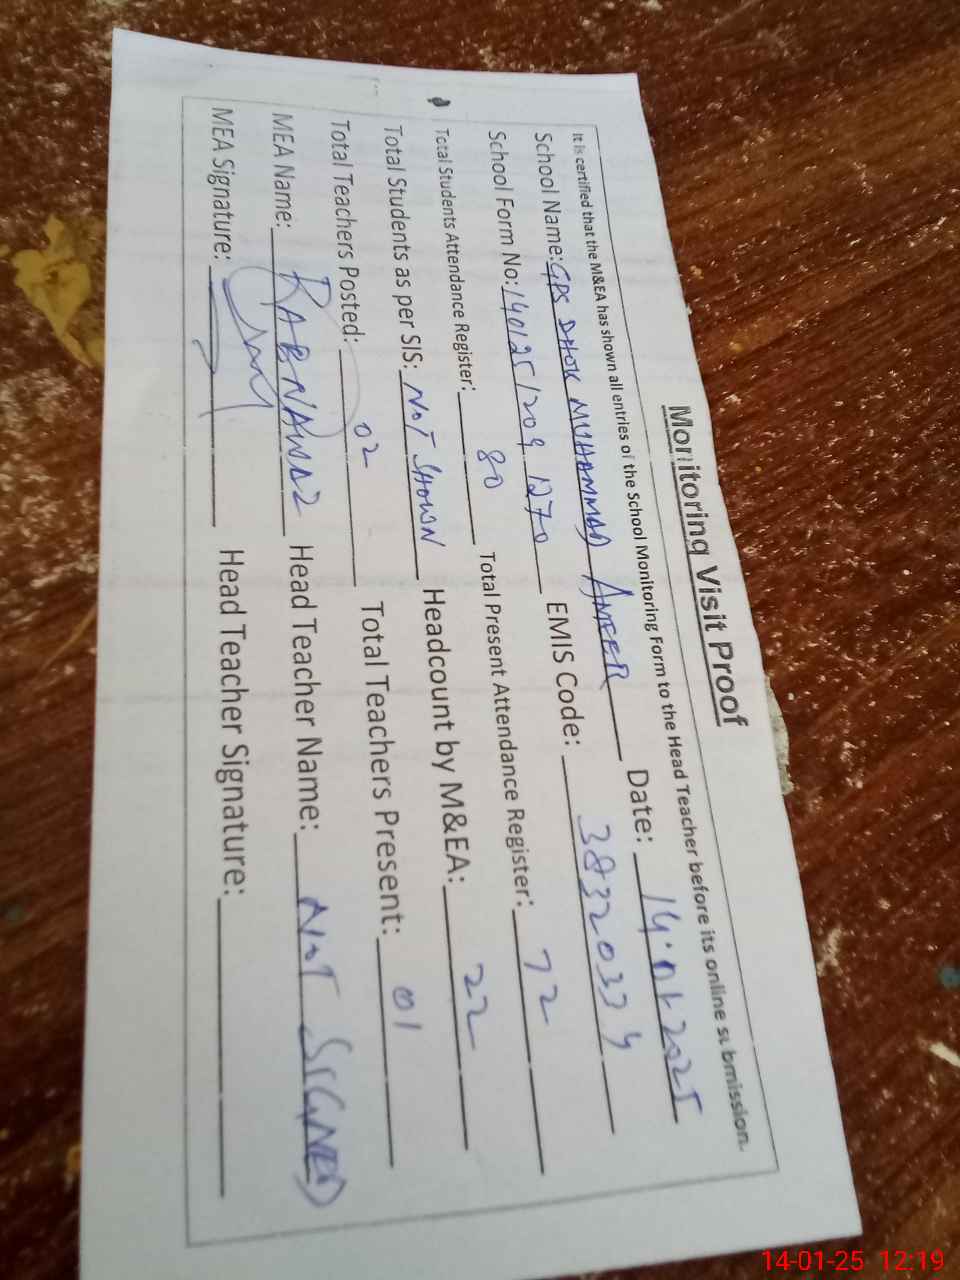 Monitoring Visit Proof
It is certified that the M&EA has shown all entries of the School Monitoring Form to the Head Teacher before its online submission.
School Name: GPS DHOK MUHAMMAD AMEER Date: 14.01.2025
School Form No: 140125/209 1270 EMIS Code: 38320334
Total Students Attendance Register: 80 Total Present Attendance Register: 72
Total Students as per SIS: NOT SHOWN Headcount by M&EA: 22
Total Teachers Posted: 02 Total Teachers Present: 01
MEA Name: RABNAWAZ Head Teacher Name: NOT SIGNED
MEA Signature: Head Teacher Signature:
14-01-25 12:19